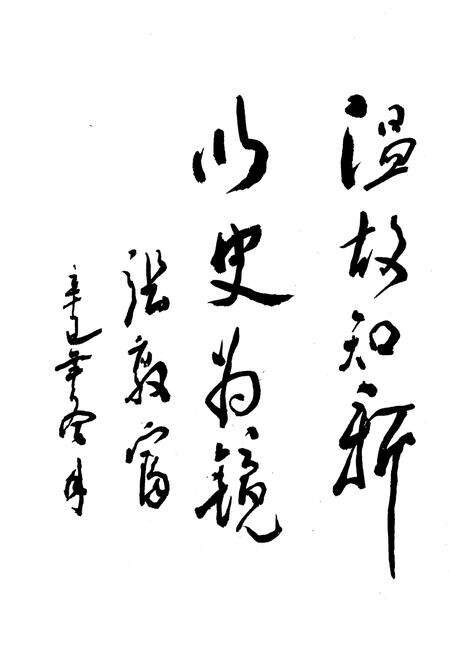 温故知新
以史为镜
张敦富
辛巳年冬月